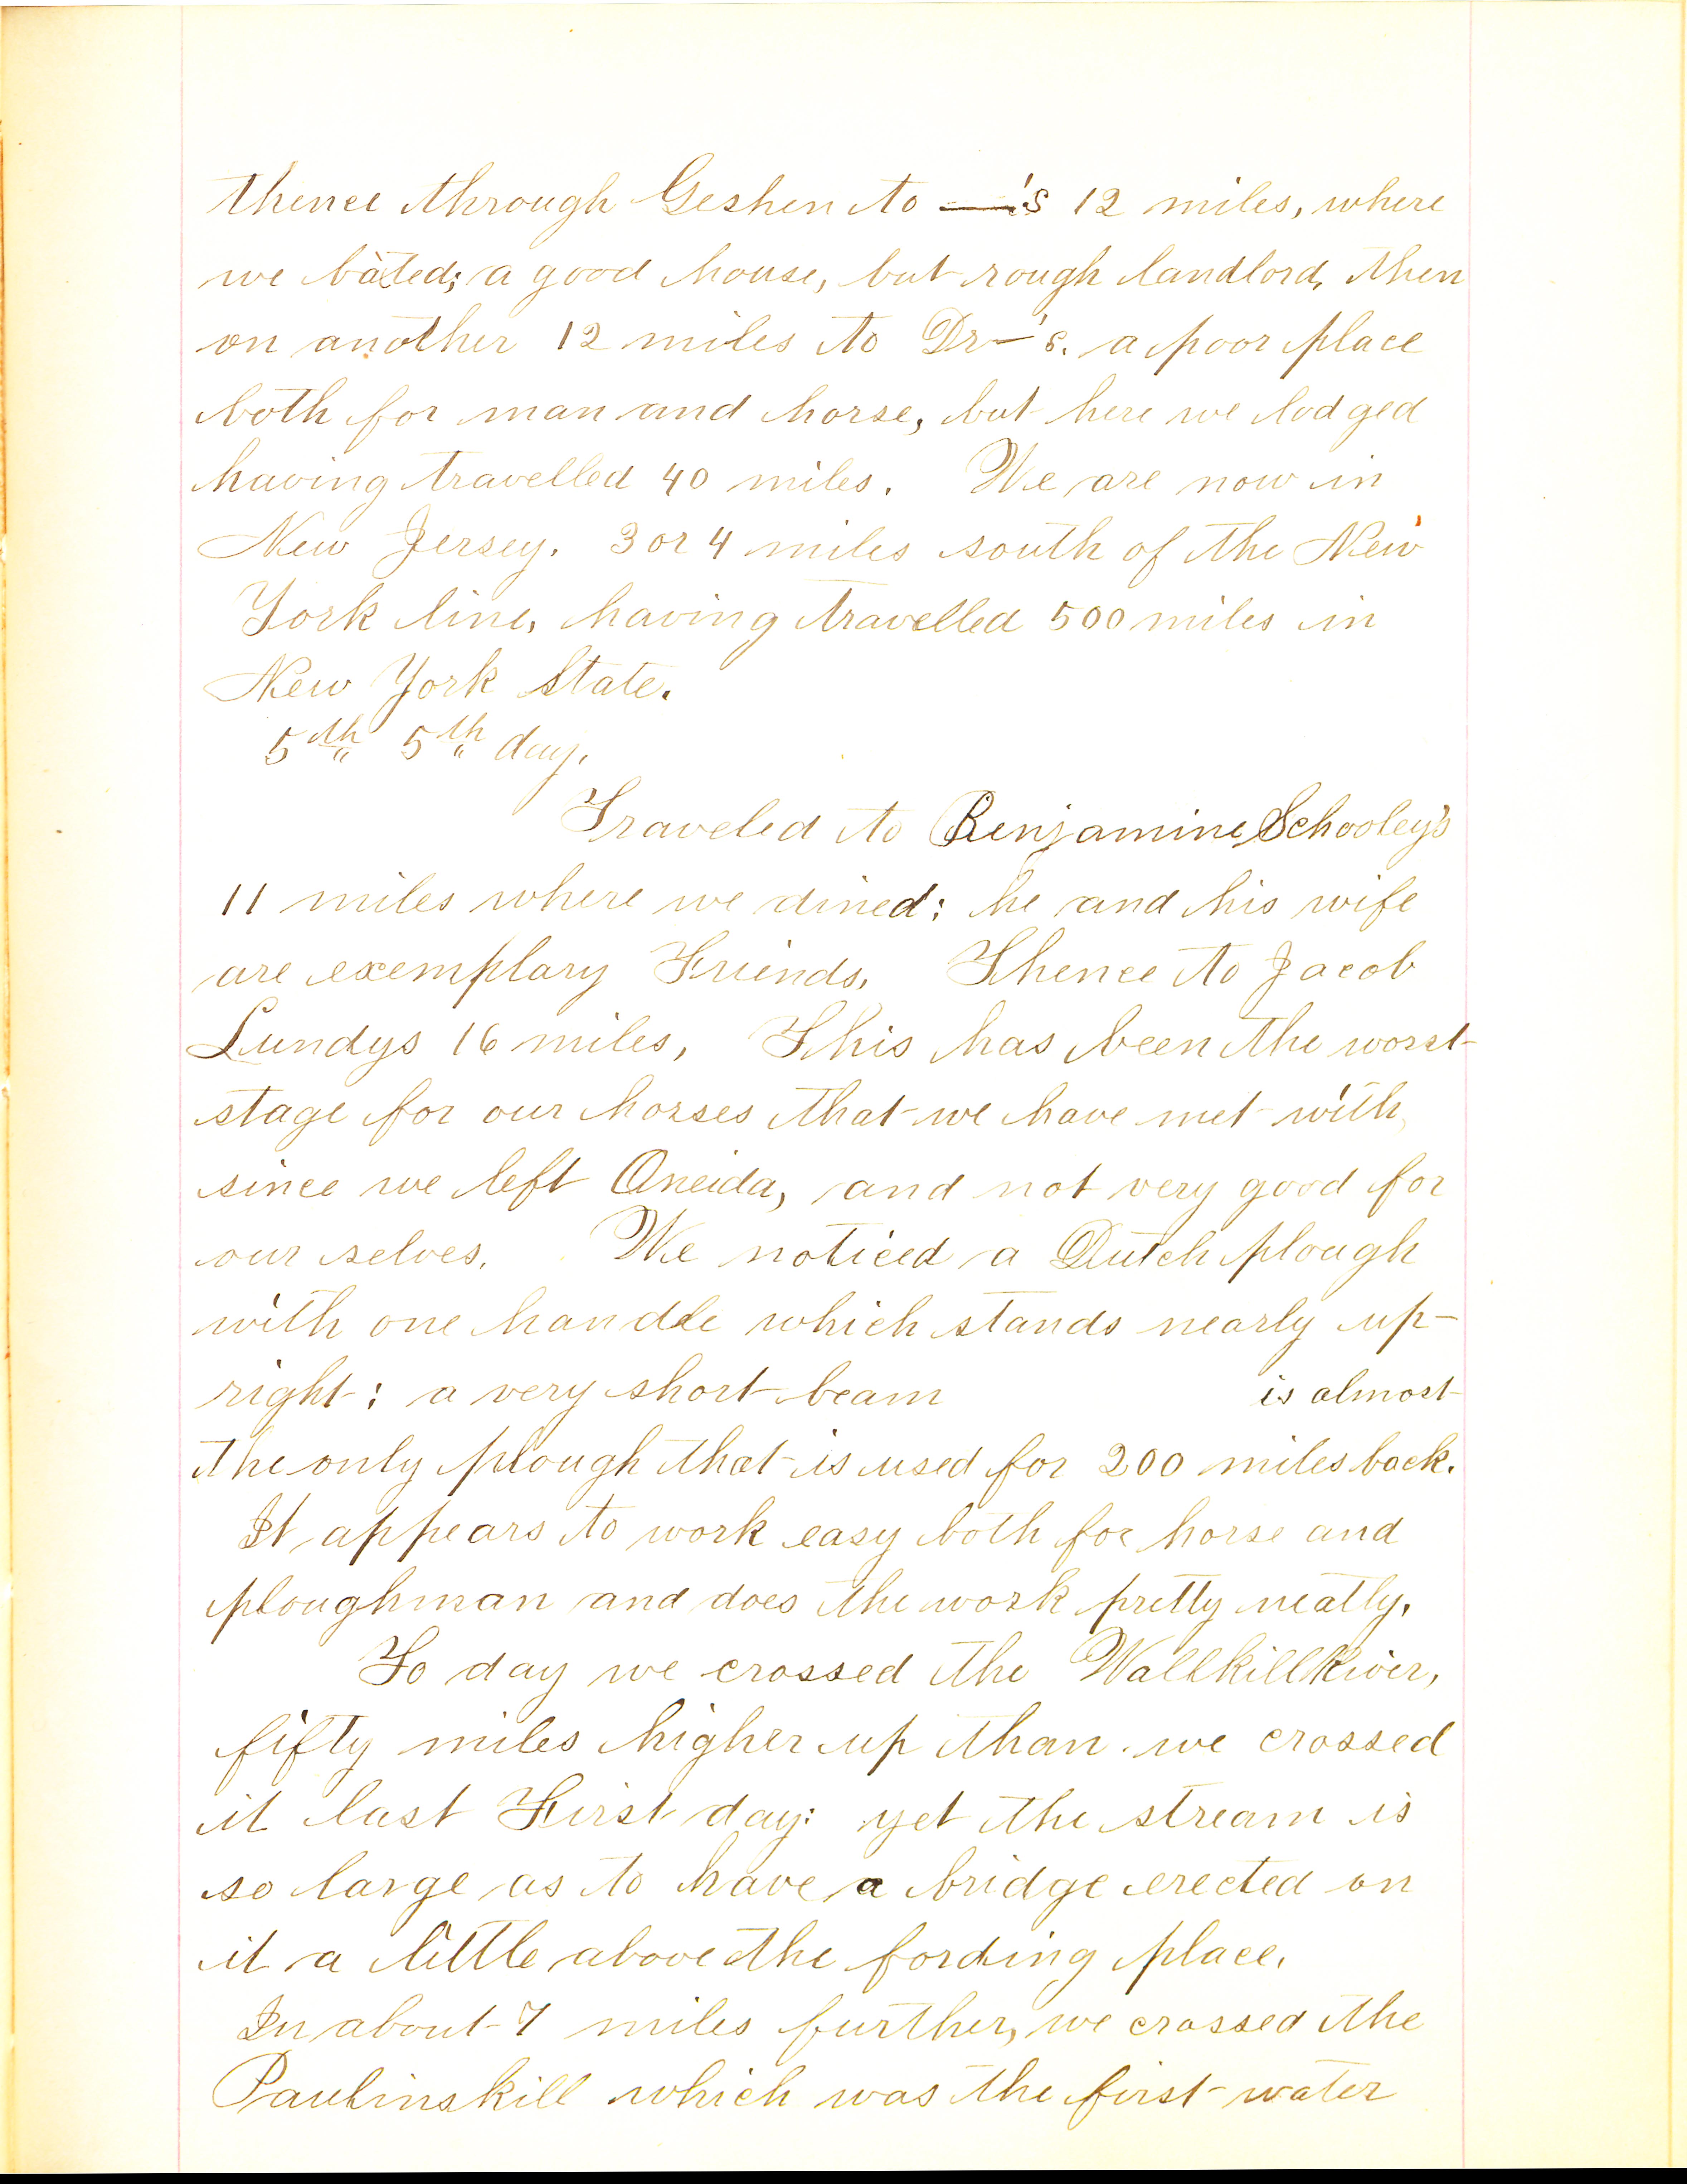 thence through Geshen to —'s 12 miles, where
we bated; a good house, but rough landlord, then
on another 12 miles to Dr—'s. a poor place
both for man and horse, but here we lodged
having travelled 40 miles. We are now in
New Jersey. 3 or 4 miles south of the New
York line, having travelled 500 miles in
New York State.
5th 5th day.
Traveled to Benjamine Schooley's
11 miles where we dined: he and his wife
are exemplary Friends. Thence to Jacob
Lundys 16 miles, This has been the worst
stage for our horses that we have met with,
since we left Oneida, and not very good for
our selves. We noticed a Dutch plough
with one handle which stands nearly up-
right: a very short beam is almost
the only plough that is used for 200 miles back.
It appears to work easy both for horse and
ploughman and does the work pretty neatly.
To day we crossed the Wallkill River,
fifty miles higher up than we crossed
it last First day: yet the stream is
so large as to have a bridge erected on
it a little above the fording place.
In about 7 miles further, we crossed the
Paulinskill which was the first water